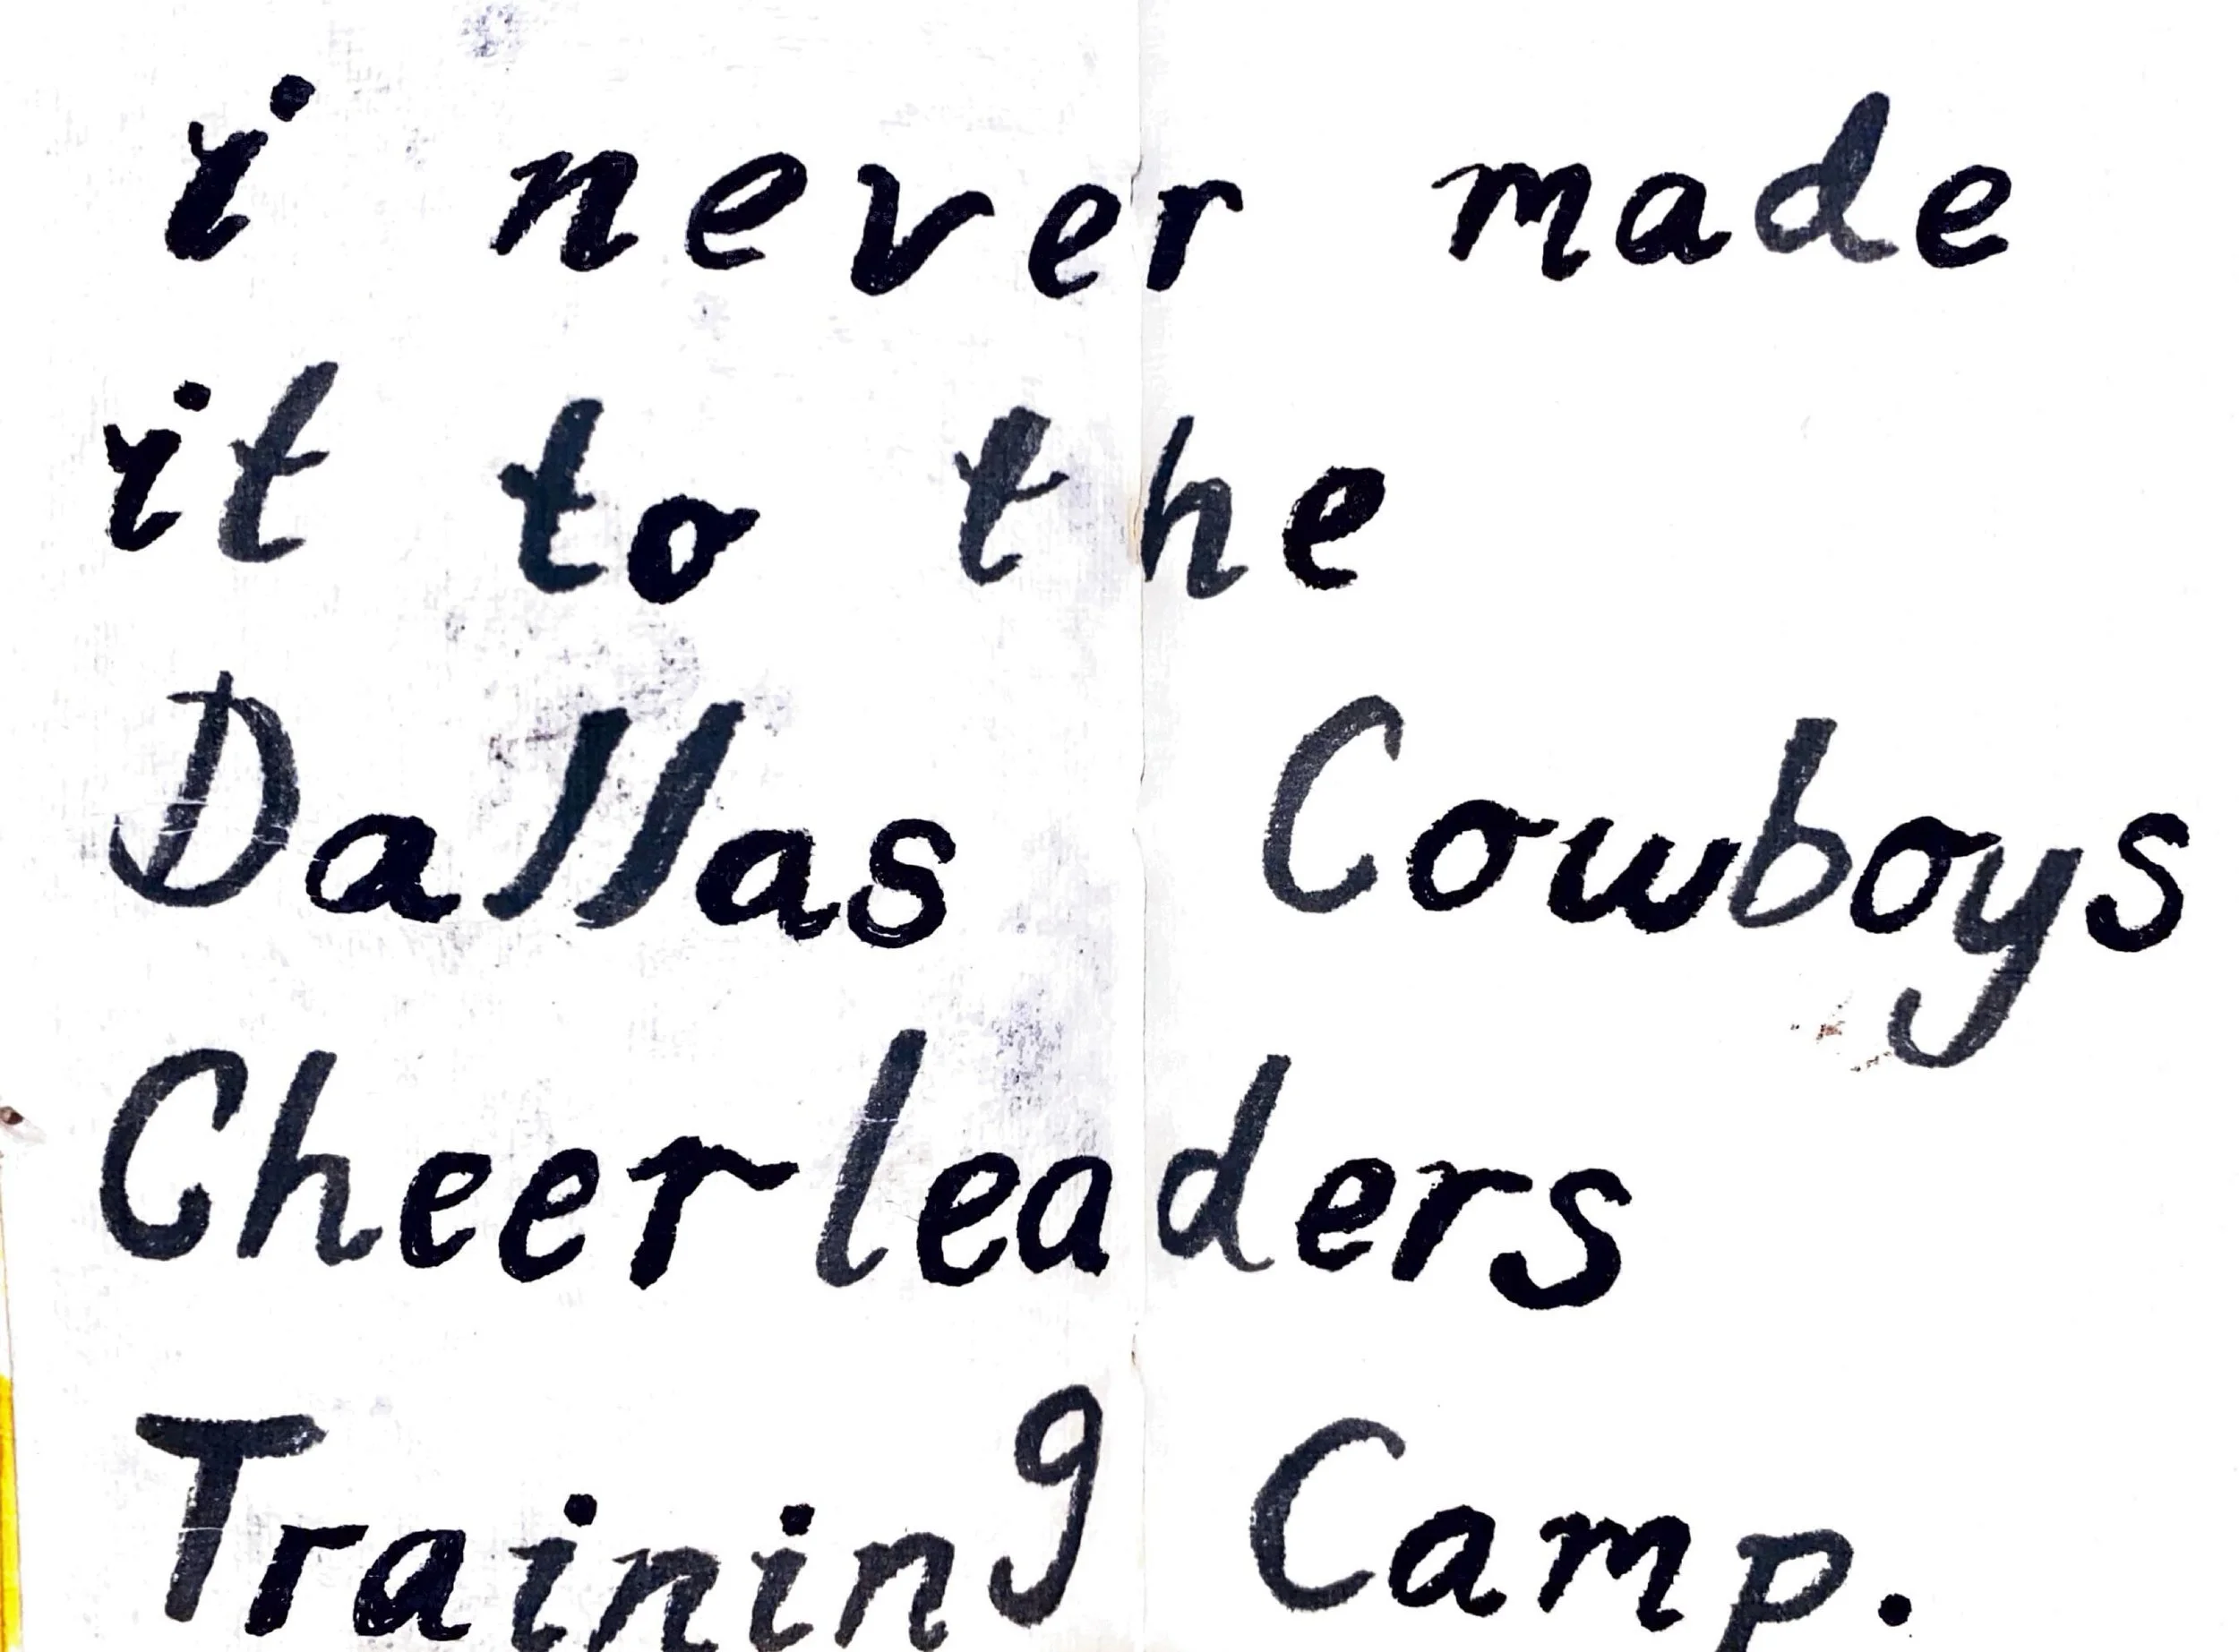 i never made
it to the
Dallas Cowboys
Cheerleaders
Training Camp.